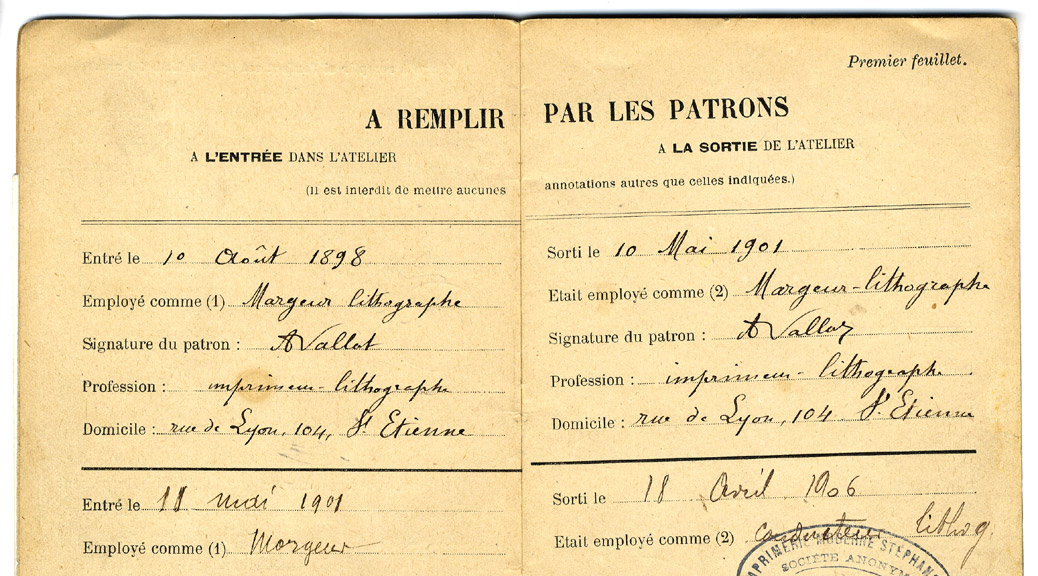 Premier feuillet.
A REMPLIR PAR LES PATRONS
A L'ENTRÉE DANS L'ATELIER
A LA SORTIE DE L'ATELIER
(Il est interdit de mettre aucunes annotations autres que celles indiquées.)
Entré le 10 Août 1898
Employé comme (1) Margeur lithographe
Signature du patron : A Vallot
Profession : imprimeur-lithographe
Domicile : rue de Lyon, 104, St Etienne
Sorti le 10 Mai 1901
Etait employé comme (2) Margeur-lithographe
Signature du patron : A Vallot
Profession : imprimeur-lithographe
Domicile : rue de Lyon, 104 St Etienne
Entré le 11 mai 1901
Employé comme (1) Margeur
Sorti le 18 Avril 1906
Etait employé comme (2) conducteur lithog.
IMPRIMERIE MODERNE STEPHAN
SOCIÉTÉ ANONYM